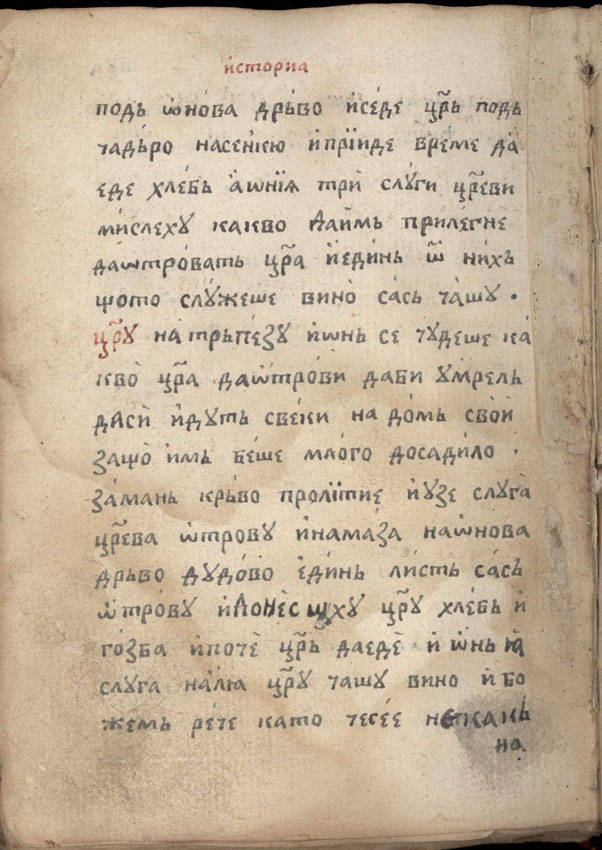 исторїа
подъ ѡ҆но́ва дрьво и҆седе цр҃ь подъ
чадѣро насенкю и҆прїиде време да
еде хлебь а҆ѡ҆нїѧ трѝ слꙋги цр҃еви
мислехꙋ какво даимь прилегне
даѡтровать цр҃а и҆единь ѿ нихъ
щото слꙋжеше вино сась чашꙋ .
цр҃ꙋ на трьпезꙋ и҆ѡнь се чꙋдеше ка
кво цр҃а даѡ҆трови даби ꙋмрель
даси идꙋть свеки на домь свои
защо имь беше много досадило .
замань крьво пролїтие иꙋзе слꙋга
цр҃ева ѡ҆тровꙋ инамаза наѡ҆нова
дрьво дꙋдово единь листь сасъ
ѡ҆тровꙋ и҆донес цр҃ꙋ хлебь и҆
гозба и҆поче цр҃ь даеде и҆ ѡ҆нь
слꙋга налїа цр҃ꙋ чашꙋ вино и҆ бо
жемь рече като чесее некакь
но.